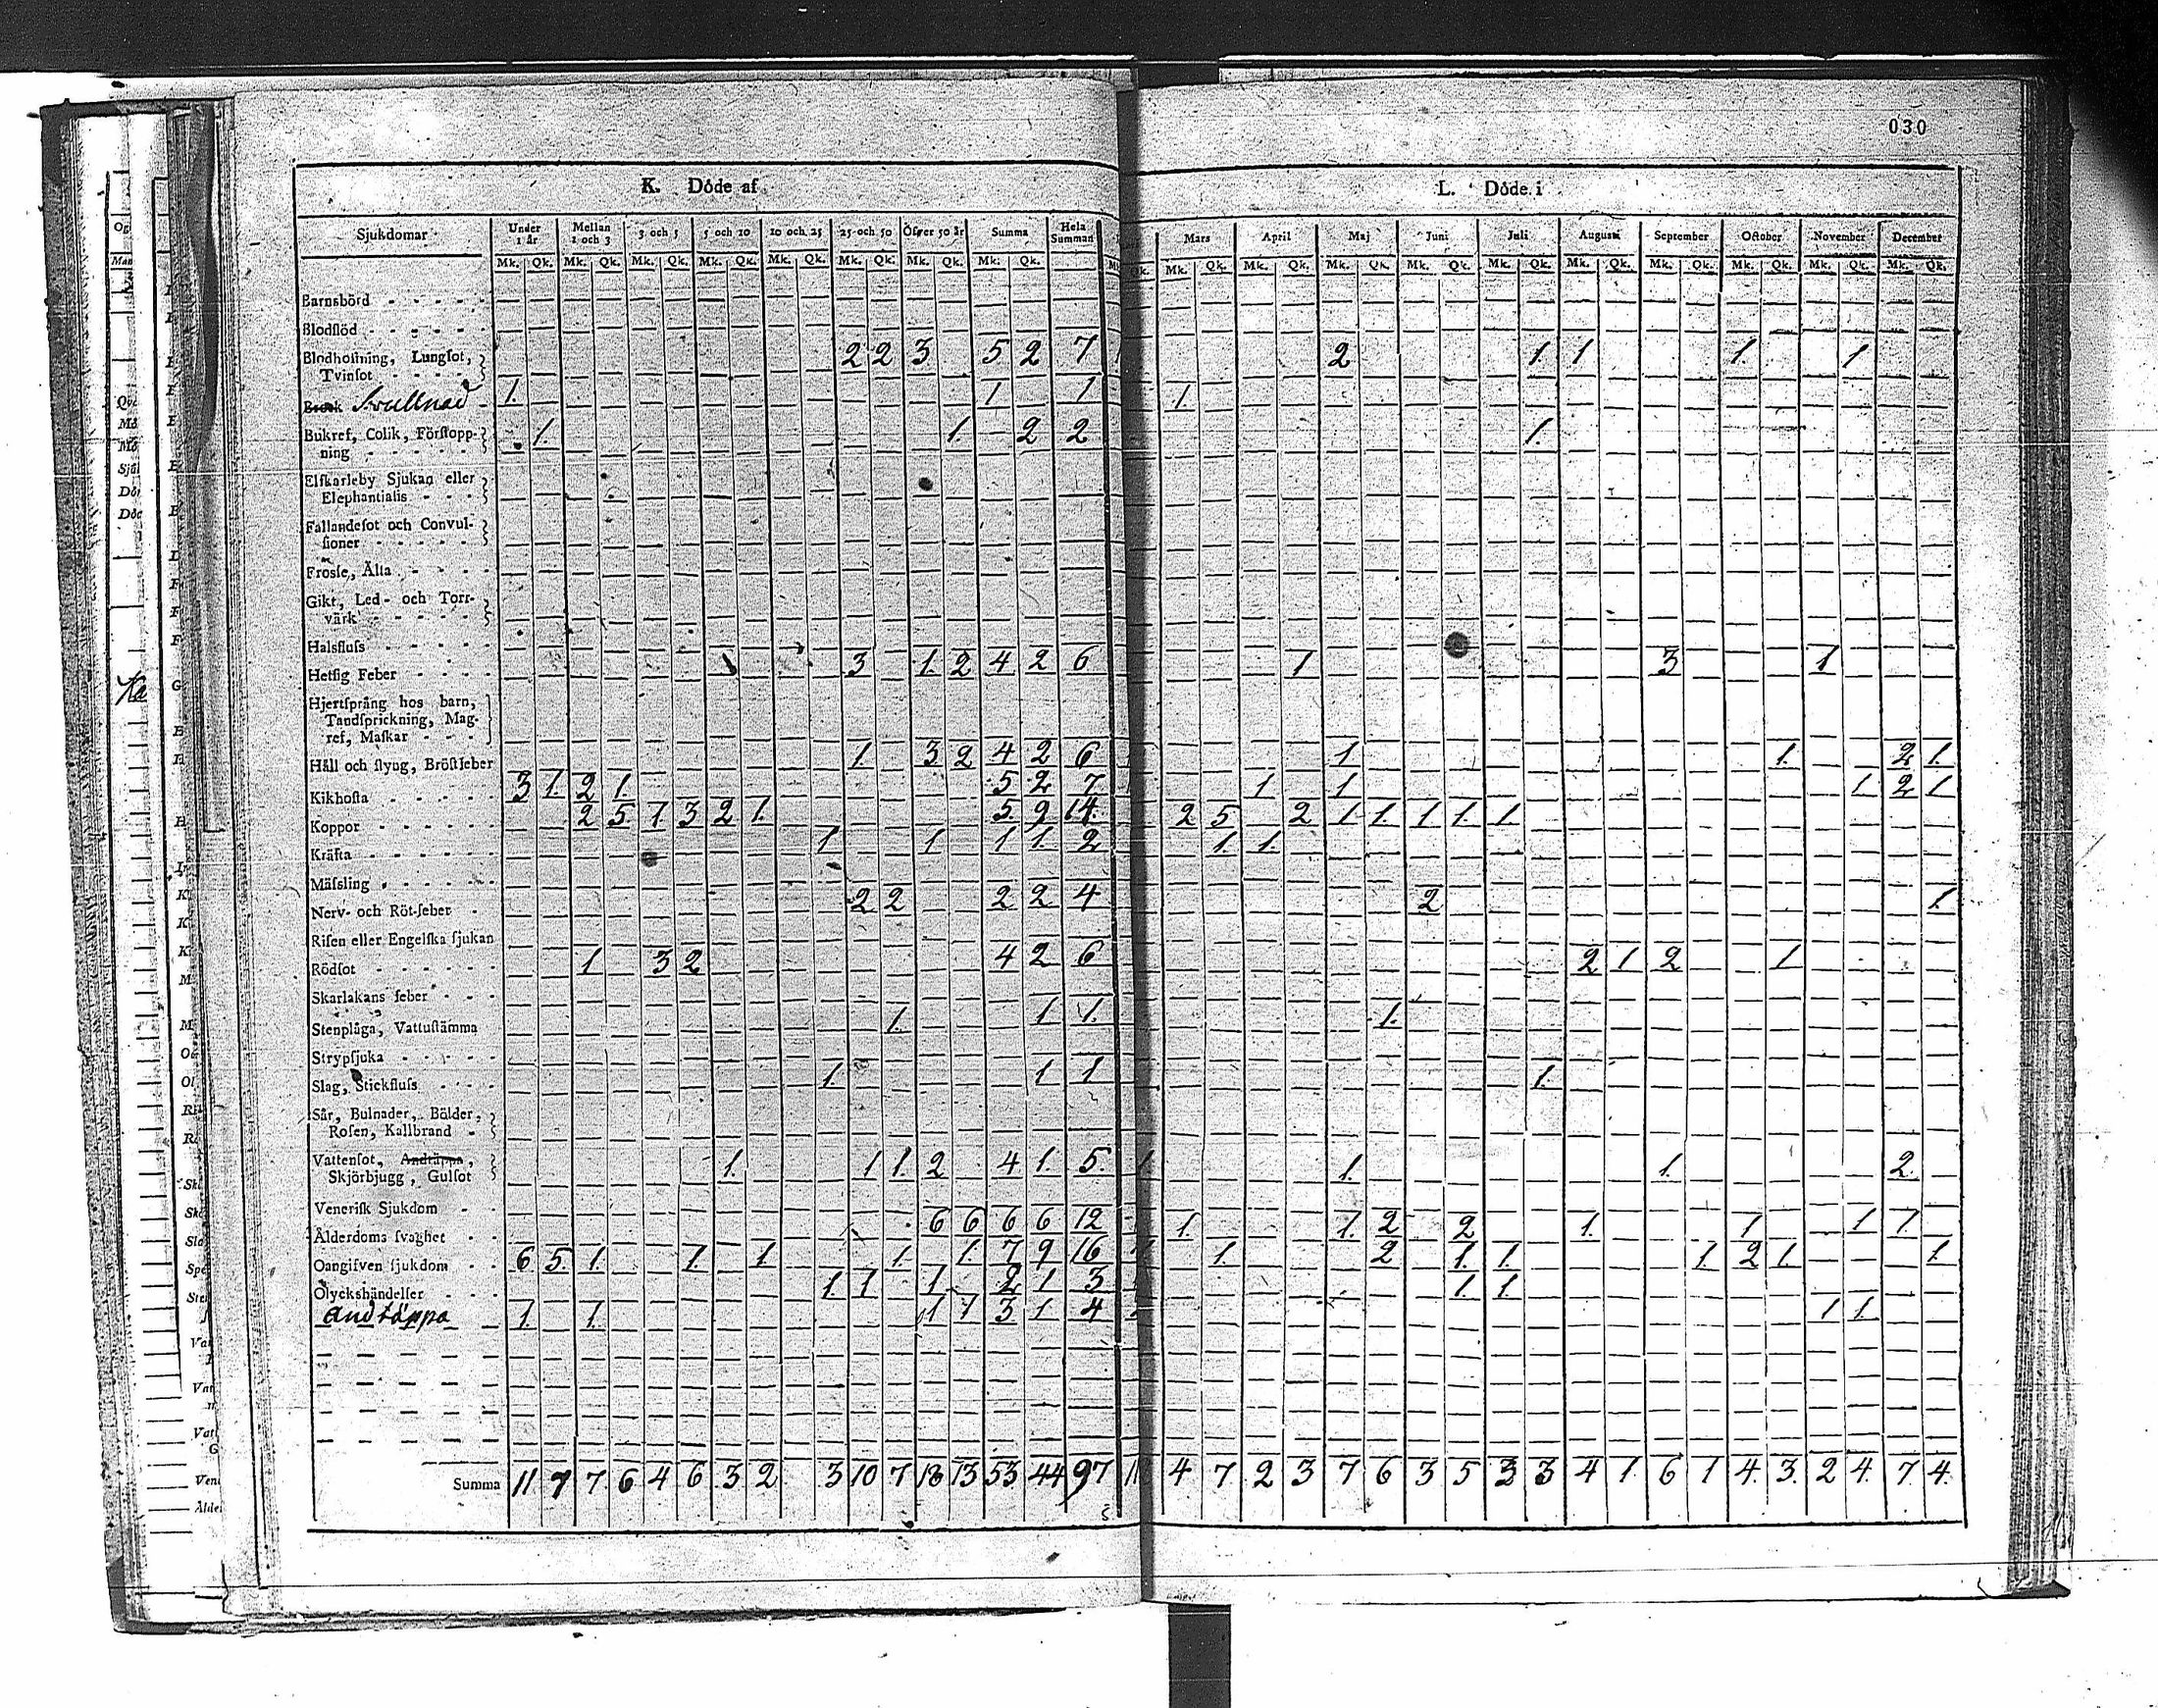 030
K. Döde af
L. Döde i
Sjukdomar Under 1 år Mellan 1 och 3 3 och 5 5 och 10 10 och 25 25 och 50 Öfver 50 år Summa Hela Summan Mars April Maj Juni Juli Augusti September October November December
Mk. Qk. Mk. Qk. Mk. Qk. Mk. Qk. Mk. Qk. Mk. Qk. Mk. Qk. Mk. Qk. Mk. Qk. Mk. Qk. Mk. Qk. Mk. Qk. Mk. Qk. Mk. Qk. Mk. Qk. Mk. Qk. Mk. Qk. Mk. Qk.
Barnsbörd
Blodflöd
Blodhostning, Lungſot, 2 2 3 5 2 7 2 1 1 1 1
Tvinſot
Svullnad 1. 1 1 1.
Bukref, Colik, Förſtopp- 1. 1. 2 2 1.
ning
Elſkarleby Sjukan eller
Elephantiaſis
Fallandeſot och Convul-
ſioner
Frosſa, Älta
Gikt, Led- och Torr-
värk
Halsfluſs
Hetſig Feber 3 1. 2 4 2 6 1 3 1
Hjertſprång hos barn,
Tandſprickning, Mag-
ref, Maſkar
Håll och ſtyng, Bröſtfeber 1. 3 2 4 2 6 1 1. 2 1.
Kikhoſta 3 1. 2 1. 5 2 7 1 1 1 2 1
Koppor 2 5 1. 3 2 1. 5. 9 14. 2 5. 2 1 1. 1 1. 1
Kräfta 1 1 1 1. 2 1. 1.
Mäſsling
Nerv- och Röt-feber 2 2 2 2 4 2 1.
Riſen eller Engelſka ſjukan
Rödſot 1 3 2 4 2 6 2 1 2 1
Skarlakans feber
Stenplåga, Vattuſtämma 1. 1 1. 1.
Strypſjuka
Slag, Stickfluſs 1. 1 1 1.
Sår, Bulnader, Bölder,
Roſen, Kallbrand
Vattenſot, Andtäppa, 1. 1 1. 2 4 1. 5. 1. 1. 1. 2.
Skjörbjugg, Gulſot
Veneriſk Sjukdom
Ålderdoms ſvaghet 6 6 6 6 12 1. 1. 2 2 1. 1 1 1.
Oangifven ſjukdom 6 5. 1. 1. 1. 1. 1. 7 9 16 1. 2 1. 1. 1. 2 1. 1.
Olyckshändelſer 1. 1 1 2 1 3 1 1
Andtäppa 1. 1. 1 1 3 1 4 1 1.
Summa 11 7 7 6 4 6 3 2 3 10 7 18 13 53 44 97 4 7 2 3 7 6 3 5 3 3 4 1. 6 1 4. 3. 2 4. 7. 4.